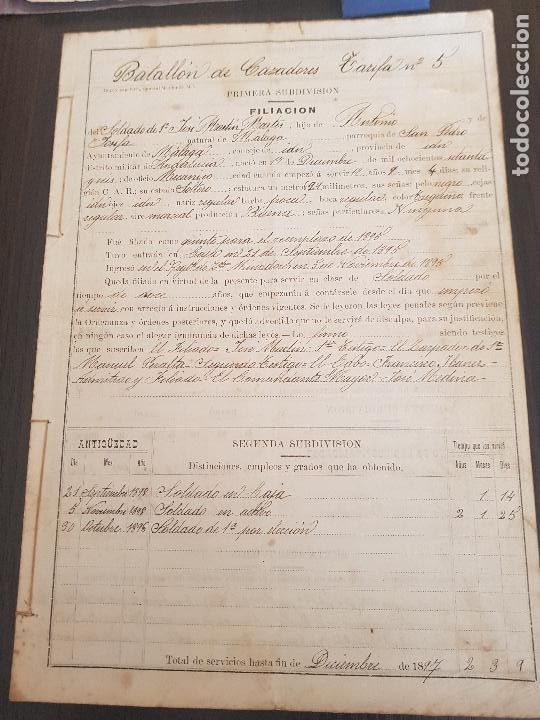 Batallón de Cazadores Tarifa nº 5
PRIMERA SUBDIVISION
FILIACION
del Soldado de 1ª José Martín Martín, hijo de Antonio y de
Josefa natural de Málaga parroquia de San Pedro
Ayuntamiento de Málaga, concejo de idn, provincia de idn
Distrito militar de Andalucia nació en 1º Diciembre de mil ochocientos
de oficio Mecanico edad cuando empezó á servir 18 años meses 4 dias: su reli-
gión C. A. R.; su estado Soltero; estatura un metro milímetros; sus señas: pelo negro, cejas
idn ojos idn, nariz regular barba poca boca regular color Trigueño frente
regular aire marcial producción Buena; señas particulares, Ninguna
Fué filiado como quinto para el reemplazo de 1895
Tuvo entrada en Caja en 21 de Septiembre de 1895
Ingresó en el Noviembre de 1895
Queda filiado en virtud de la presente para servir en clase de Soldado por el
tiempo de años, que empezarán á contársele desde el día que empezó
á servir con arreglo á instrucciones y órdenes vigentes. Se le leyeron las leyes penales según previene
la Ordenanza y órdenes posteriores, y quedó advertido que no le servirá de disculpa, para su justificación,
en ningún caso el alegar ignorancia de dichas leyes.—Lo firmó siendo testigos
los que suscriben El Filiado= José Martín= 1er Testigo= El de 1ª
Manuel Peralta= Segundo Testigo= El Cabo= Francisco Ibanez=
Admítase y Filiado= El Comandante Mayor= José Medina=
ANTIGÜEDAD
SEGUNDA SUBDIVISION
Tiempo que los sirvió
Día Mes Año
Distinciones, empleos y grados que ha obtenido.
Años Meses Días
21 Septiembre 1895 Soldado en Caja 1 14
5 Noviembre 1895 Soldado en activo 2 1 25
30 Octubre 1896 Soldado de 1ª por elección
Total de servicios hasta fin de Diciembre de 1897 2 3 9
todocoleccion.net